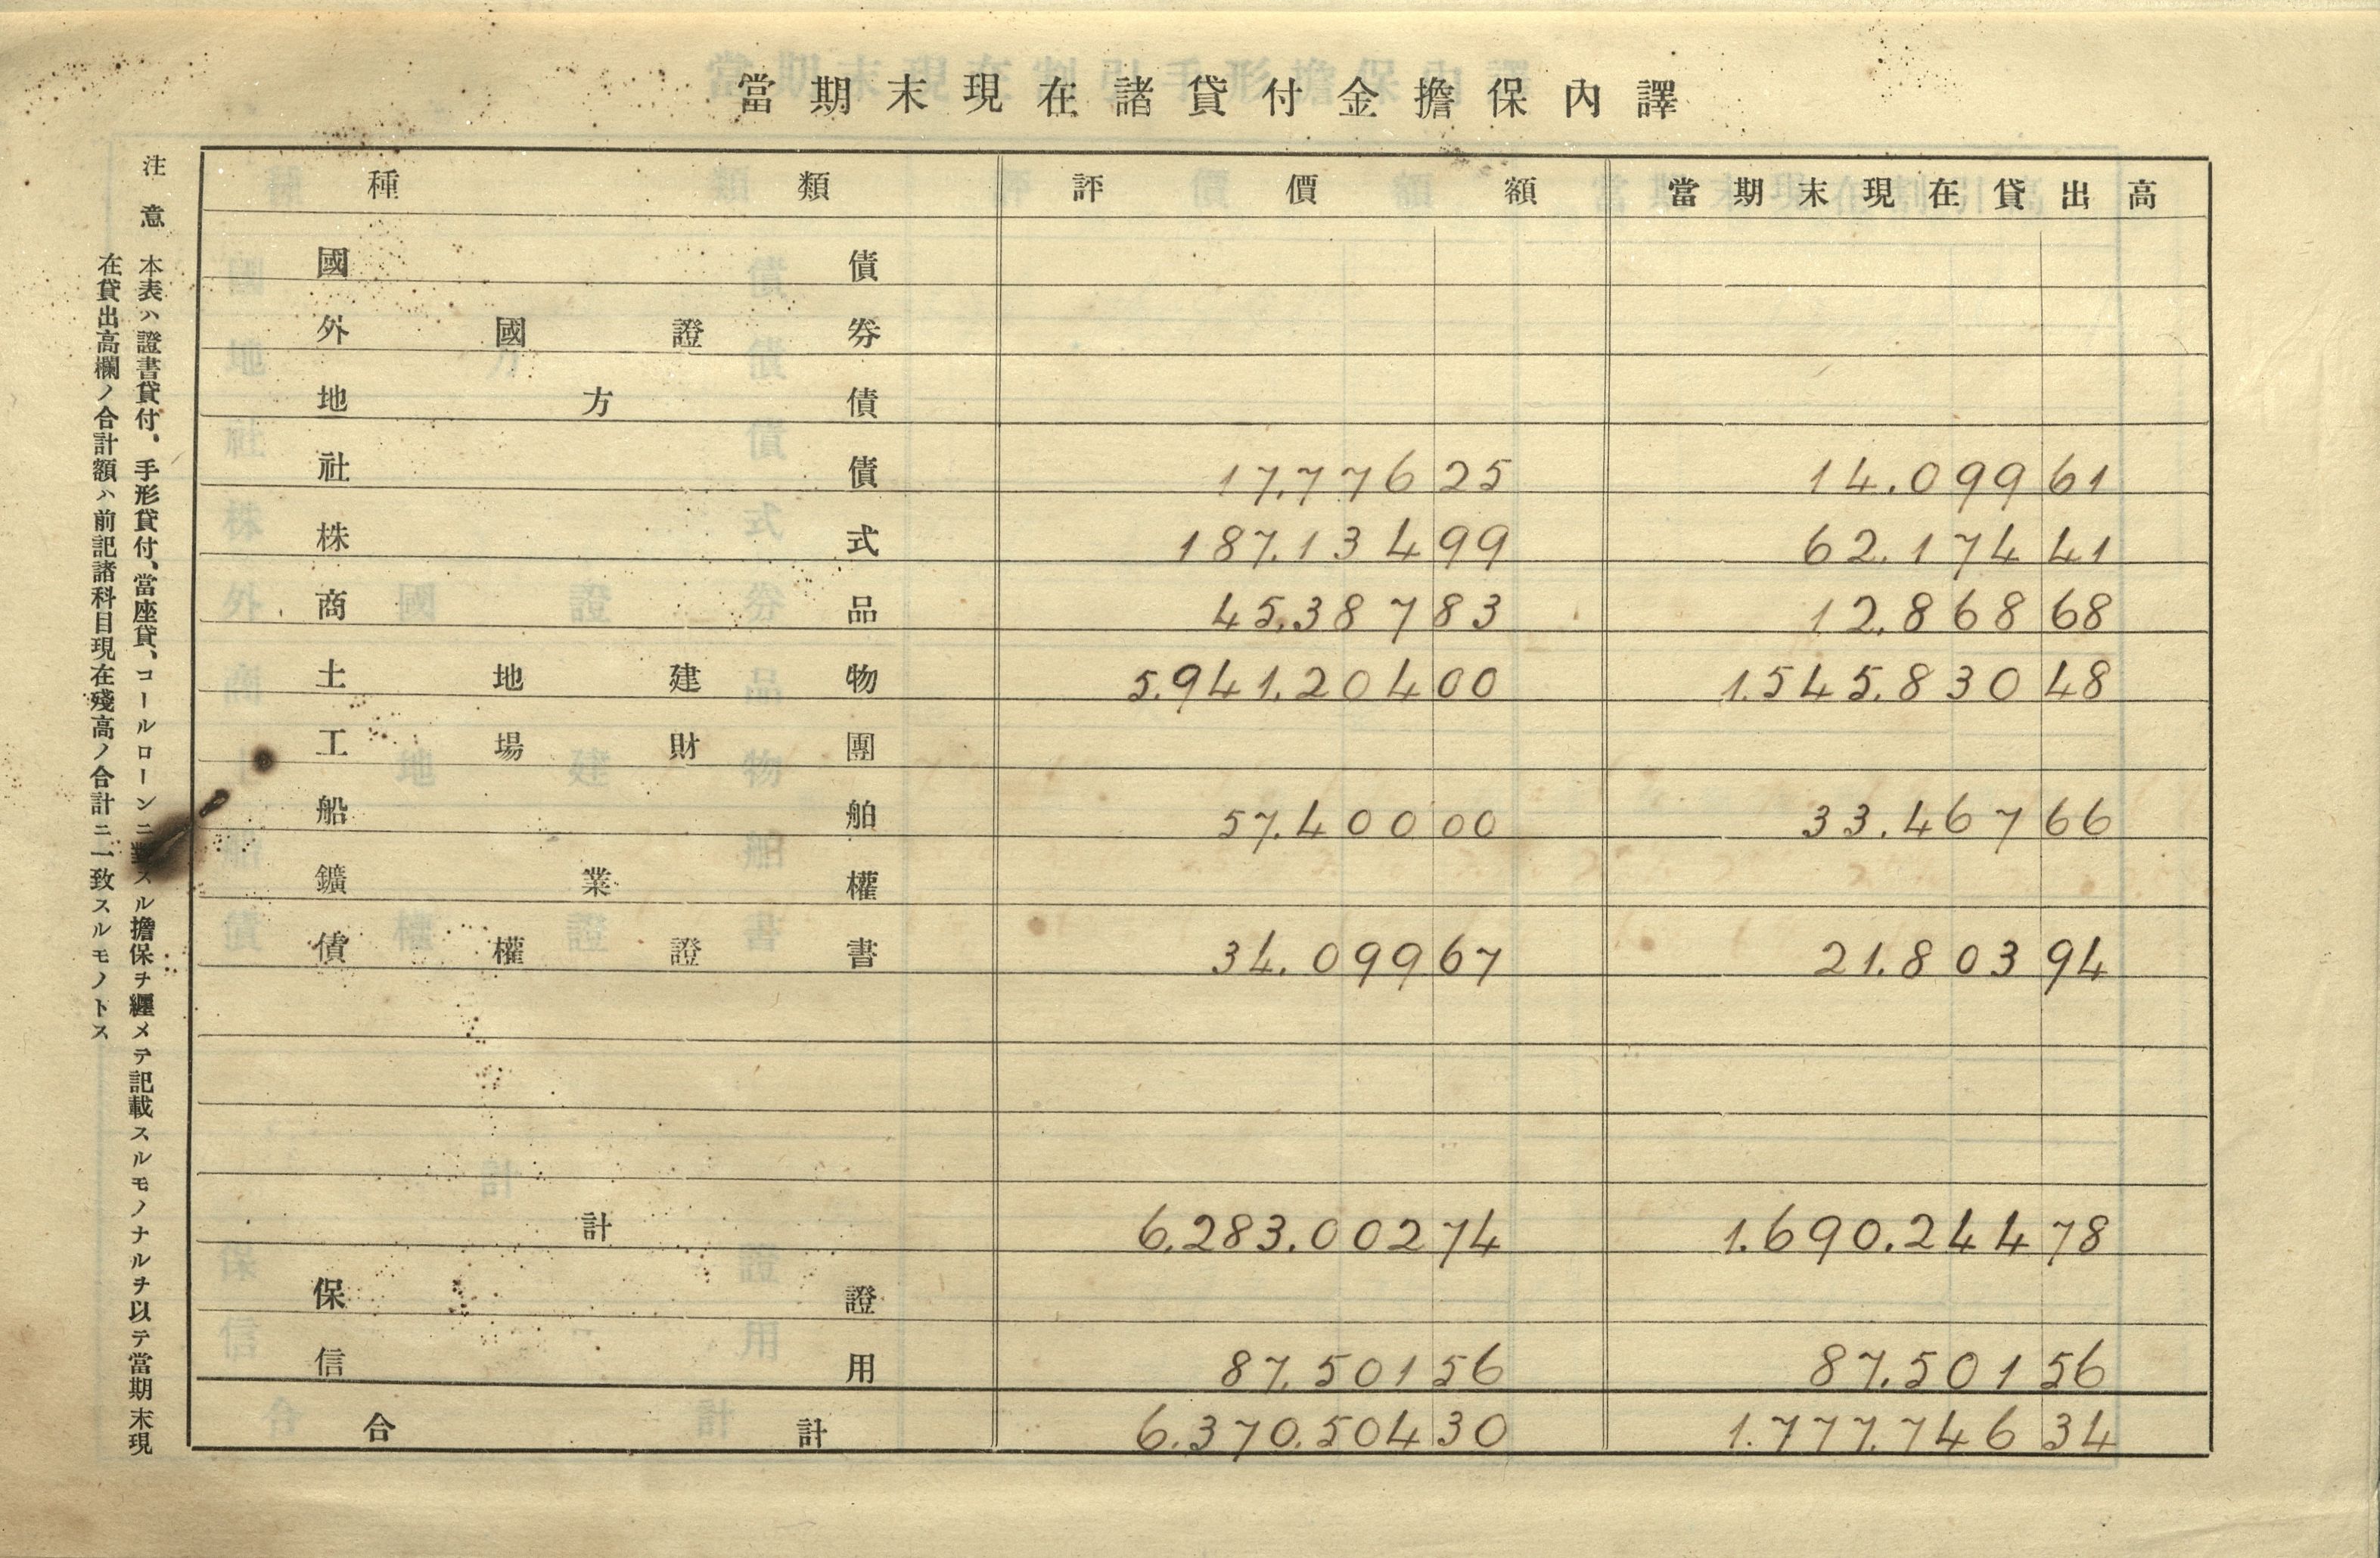 當期末現在諸貸付金擔保內譯
種類 評價額 當期末現在貸出高
國債
外國證券
地方債
社債 17.776 25 14.099 61
株式 187.134 99 62.174 41
商品 45.387 83 12.868 68
土地建物 5.941.204 00 1.545.830 48
工場財團
船舶 57.400 00 33.467 66
鑛業權
債權證書 34.099 67 21.803 94
計 6.283.002 74 1.690.244 78
保證
信用 87.501 56 87.501 56
合計 6.370.504 30 1.777.746 34
注意 本表ハ證書貸付、手形貸付、當座貸、コールローンニ對スル擔保ヲ纒メテ記載スルモノナルヲ以テ當期末現
在貸出高欄ノ合計額ハ前記諸科目現在殘高ノ合計ニ一致スルモノトス